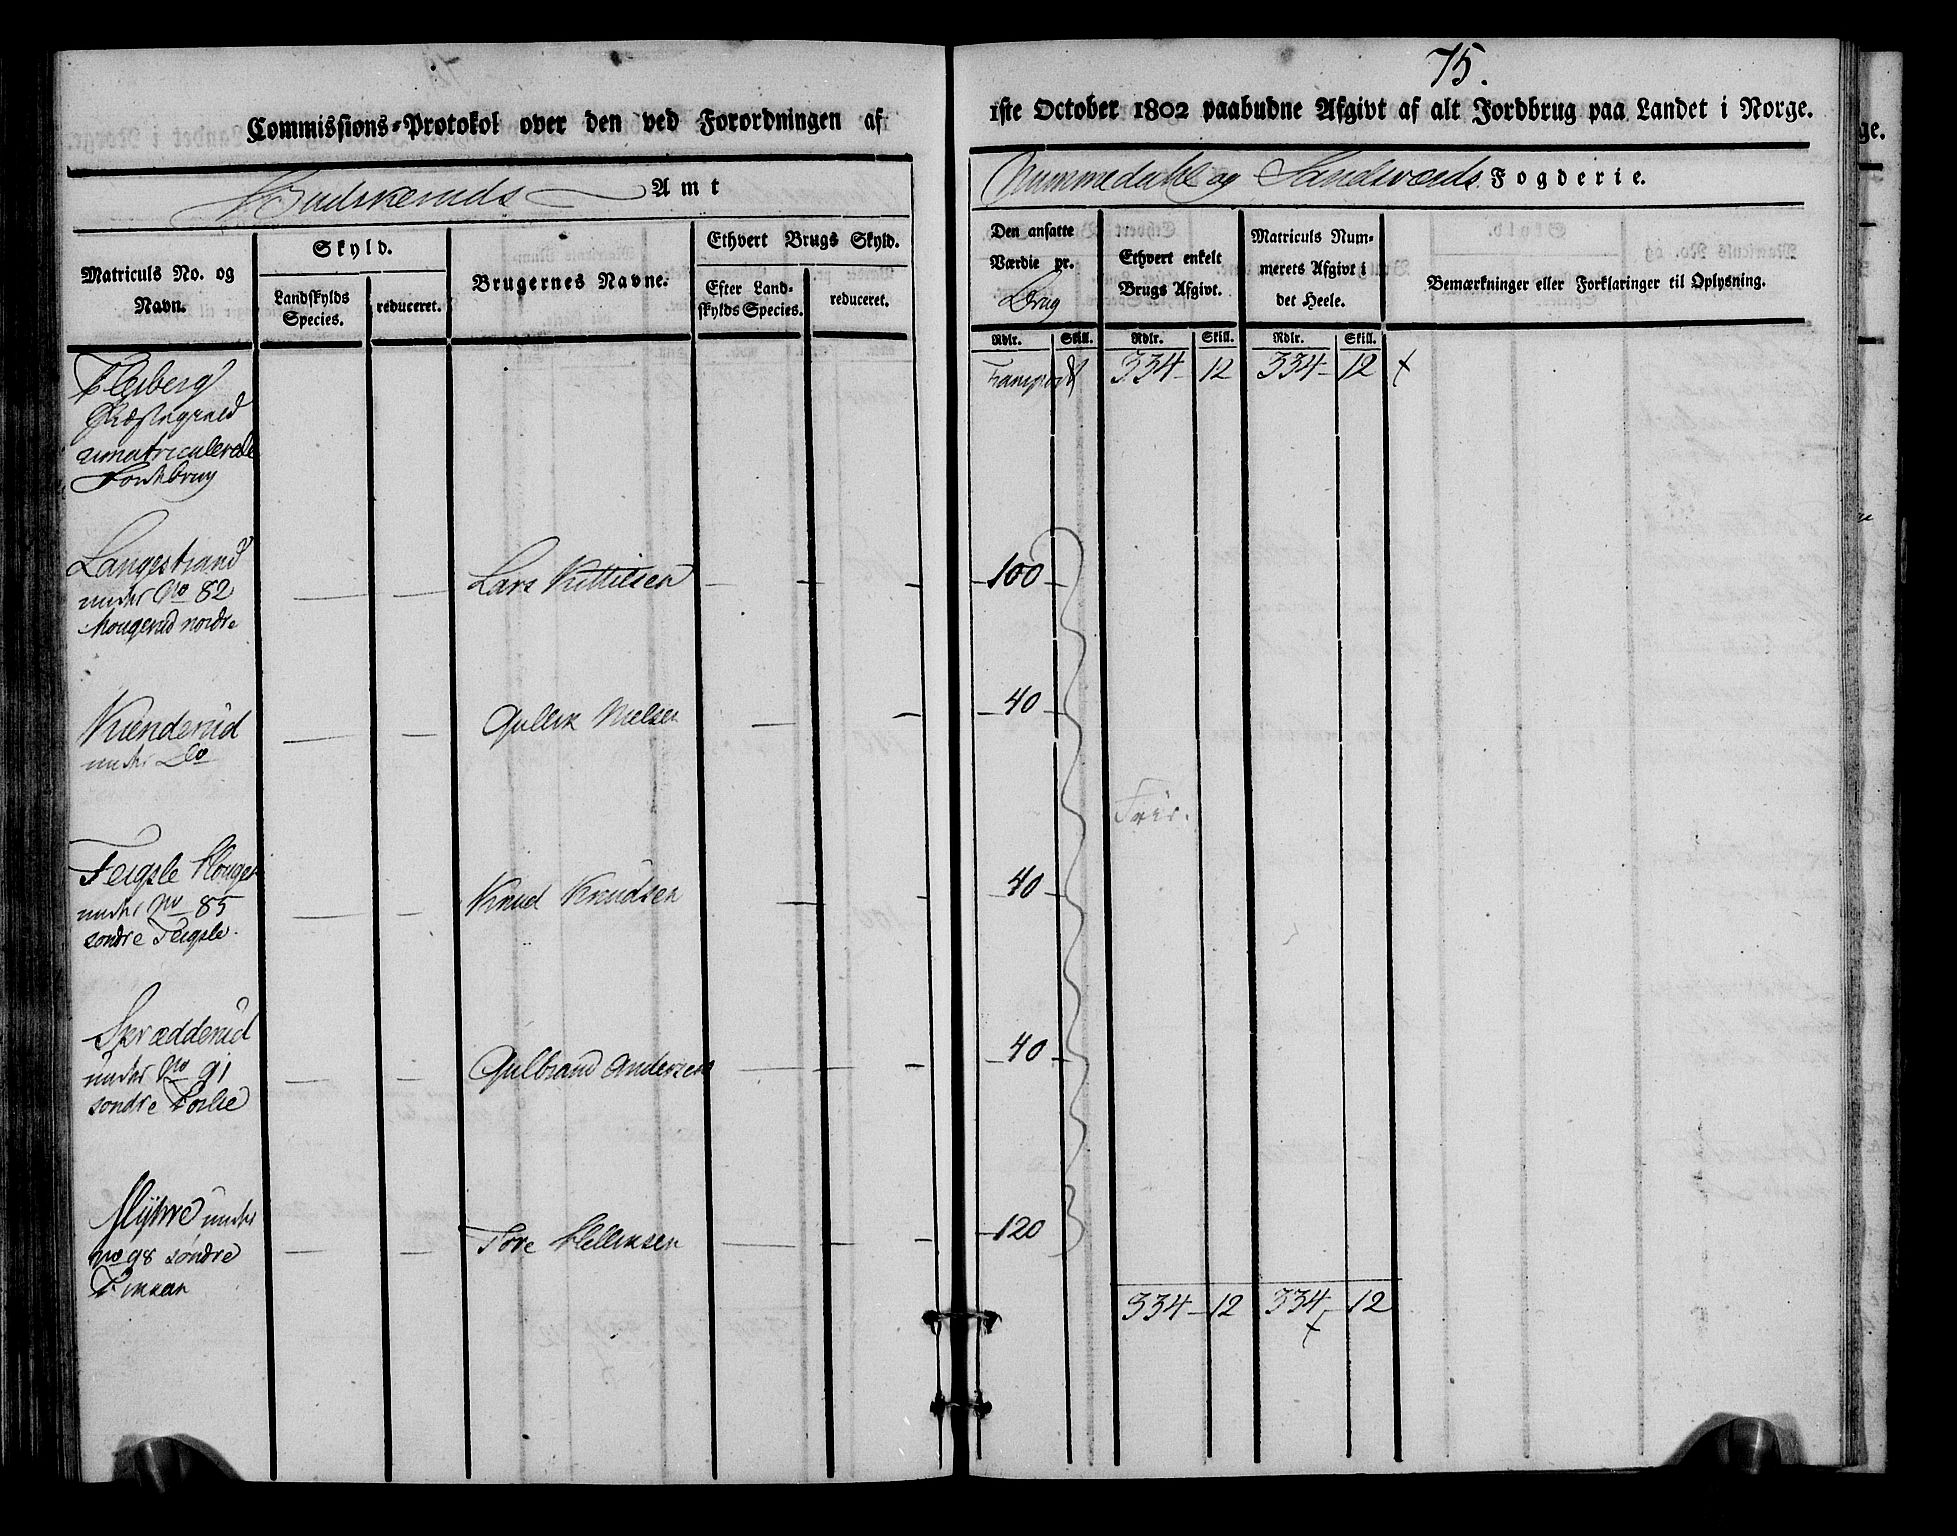 75.
Commissions-Protokol over den ved Forordningen af
1ste October 1802 paabudne Afgivt af alt Jordbrug paa Landet i Norge.
Budskeruds Amt
Nummedahl og Sandsværds Fogderie.
Matriculs No. og
Navn.
Skyld.
Landskylds
Species.
reduceret.
Brugernes Navne.
Ethvert Brugs Skyld.
Efter Land-
skylds Species.
reduceret.
Den ansatte
Værdie pr.
Brug
Ethvert enkelt
Brugs Afgivt.
Matriculs Num-
merets Afgivt i
det Heele.
Bemærkninger eller Forklaringer til Oplysning.
Rdlr. Skill. Rdlr. Skill. Rdlr. Skill.
Flesberg
Præstegield
umatriculerede
Jordbrug
Transport 334 - 12 334 - 12 x
Langestrand
under No 82
Hougerud nordre
Lars Kittilsen
100
Kienderud
under Do
Gullik Nielsen
40
Frir.
Feigsle Houger
under No 85
sondre Feigsle.
Knud Knudsen
40
Skrædderud
under No 91
sondre
Gulbrand Andersen
40
Myhre under
No 98 søndre
Tore Helliksen
120
334 - 12 334 - 12
x